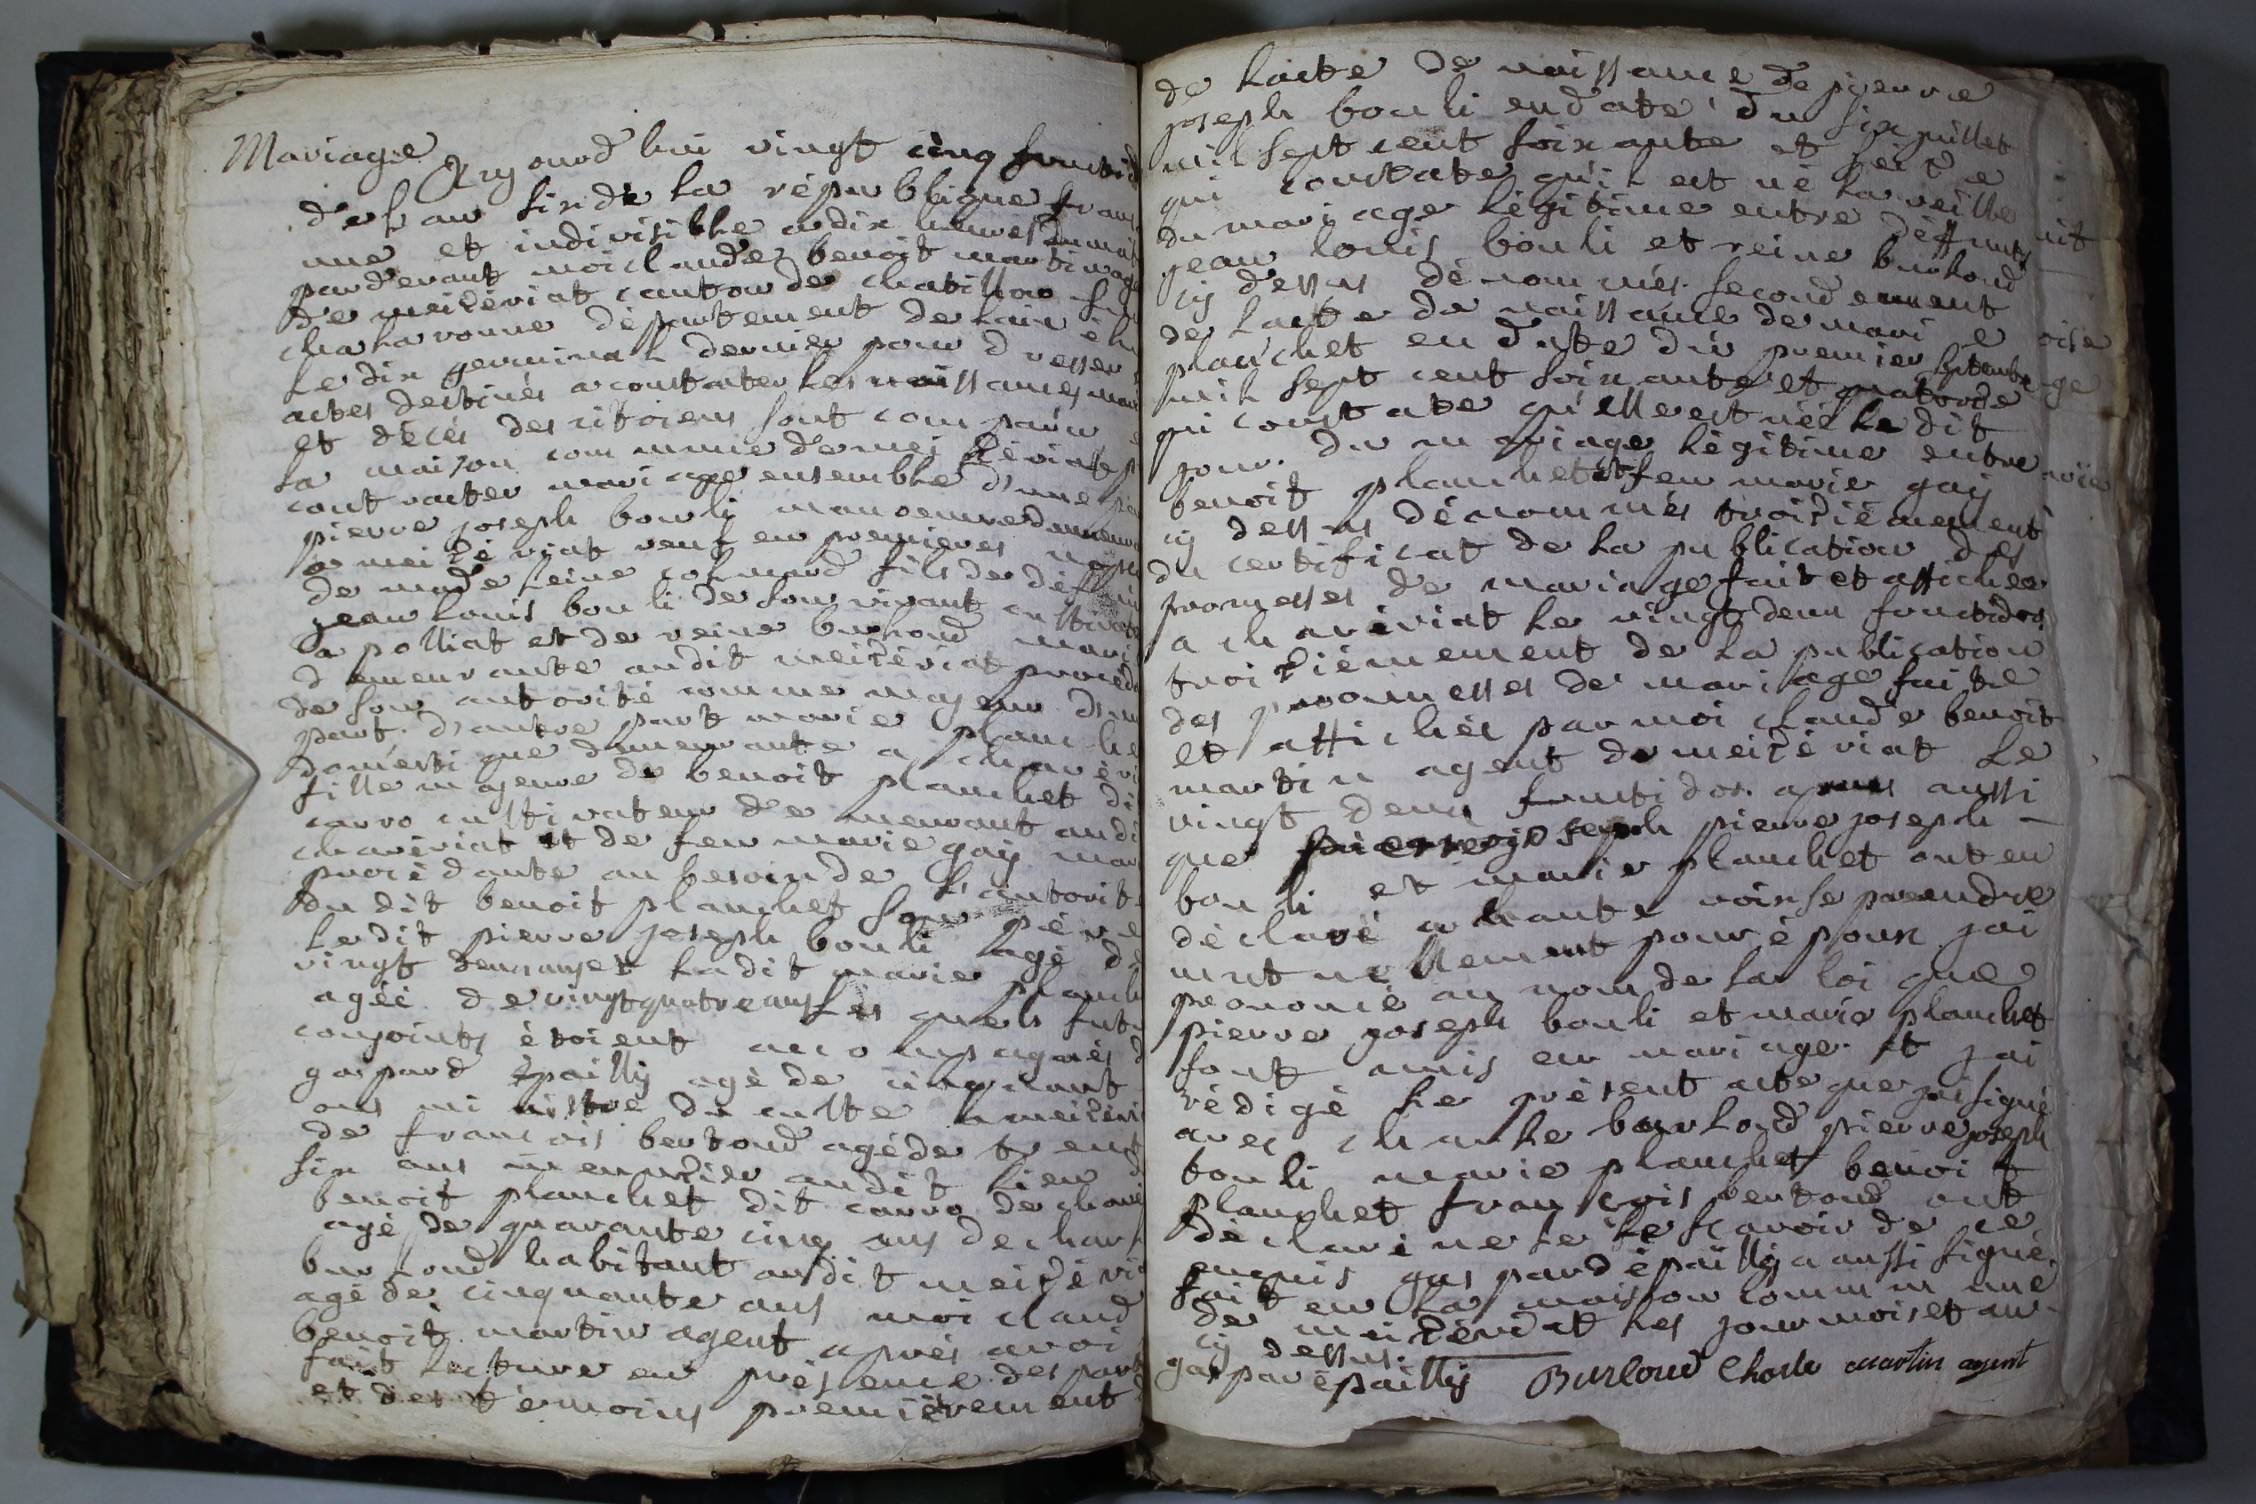 Mariage
aujourd'hui vingt cinq fructid
de l an six de la républiques fran
une et indivisible a dix heures du mat
pardevant moi claude benoit martin ag
de meizériat canton de chatillon
chalaronne département de lain élu
le dix germinal dernier pour dresser
actes destinés a constater les naissances mar
et décès des citoiens sont comparu
la maison commune de meizériat p
contracter mariage ensemble d'une
pierre joseph bouli manoeuvre demeura
a meizériat veuf en premieres
de fils de deffun
jean louis bouli de son vivant cultivat
a polliat et de reine burloud
demeurante audit meizériat procéda
de son autorité comme majeur d'un
part. d'autre part marie planche
domestique demeurante a chavéri
fille majeure de benoit planchet di
carro cultivateur demeurant audi
chavériat et de feu marie gay
procédante au besoin de l'autorit
du dit benoit planchet son père
ledit pierre joseph bouli agé d
vingt deux ans et la dit marie planch
agéé de vingt quatre ans les quels futu
conjoints étoient accompagnés d
gaspard épailly agé de cinquant
ans ministre du culte a meiziri
de francois bertoud agé de trent
six ans menuzier audit lieu d
benoit planchet dit carro de chavé
agé de quarante cinq ans de charl
burloud habitant audit meizéri
agé de cinquante ans moi claud
benoit martin agent apres avoi
fait lecture en présence des part
et des témoins premièrement
de lacte de naissance de pierre
joseph bouli en date du six juillet
mil sept cent soixante et seize
qui constate qu'il est né la veille
du mariage légitime entre déffunts
jean louis bouli et reine burloud
cy dessus dénommés. secondement
de lacte de naissance de marie
planchet en date du premier septembre
mil sept cent soixante et quatorze
qui constate qu'elle est néé le dit
jour. du mariage légitime entre
benoit planchet et feu marie gay
cy dessus dénommés troiziémement
du certificat de la publication des
promesses de mariage fait et affichée
a chavériat le vingt deux fructidor
troiziémement de la publication
des promesses de mariage faite
et affichéé par moi claude benoit
martin agent de meizériat le
vingt deux fructidor. apres aussi
que pierre joseph pierre joseph -
bouli et marie planchet ont eu
déclaré a haute voix se prendre
mutuellement pour époux jai
prononcé au nom de la loi que
pierre joseph bouli et marie planchet
sont unis en mariage. et jai
rédigé le présent acte que jai signé
avec charle bourloud pierre joseph
bouli marie planchet benoit
planchet francois bertoud ont
déclaré ne le scavoir de ce
enquis gaspard épailly a aussi signé
fait en la maison commune
de meizériat les jour mois et an
cy dessus.
gaspar épailly Burloud Charle martin agent